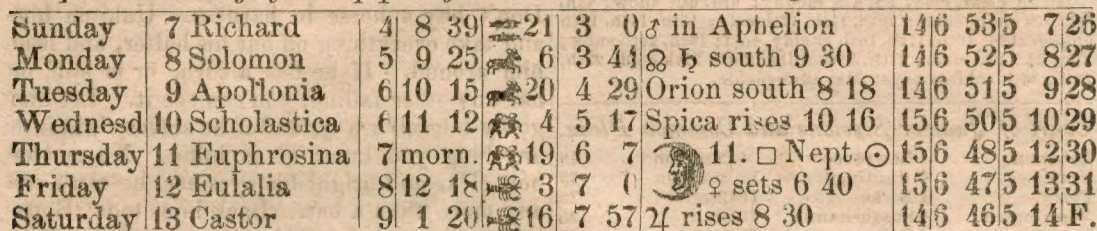 Sunday 7 Richard 4 8 39 21 3 0 ♂ in Aphelion 14 6 53 5 7 26
Monday 8 Solomon 5 9 25 6 3 44 ☊ ♄ south 9 30 14 6 52 5 8 27
Tuesday 9 Apollonia 6 10 15 20 4 29 Orion south 8 18 14 6 51 5 9 28
Wednesd 10 Scholastica 6 11 12 4 5 17 Spica rises 10 16 15 6 50 5 10 29
Thursday 11 Euphrosina 7 morn. 19 6 7 11. □ Nept ☉ 15 6 48 5 12 30
Friday 12 Eulalia 8 12 18 3 7 0 ♀ sets 6 40 15 6 47 5 13 31
Saturday 13 Castor 9 1 20 16 7 57 ♃ rises 8 30 14 6 46 5 14 F.